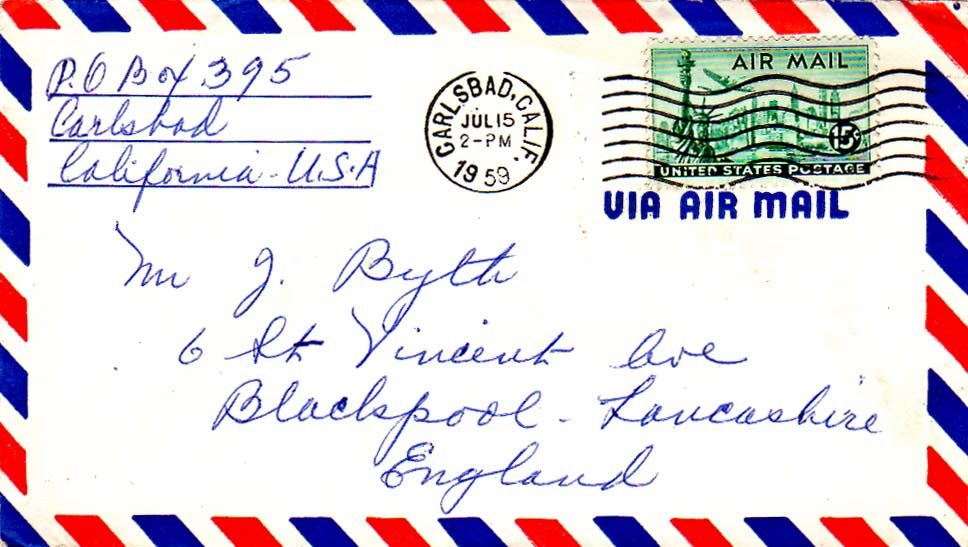 P.O Box 395
Carlsbad
California - U.S.A
CARLSBAD, CALIF.
JUL 15
2-PM
1959
AIR MAIL
15¢
UNITED STATES POSTAGE
VIA AIR MAIL
Mr J. Byth
6 St Vincent Ave
Blackpool - Lancashire
England